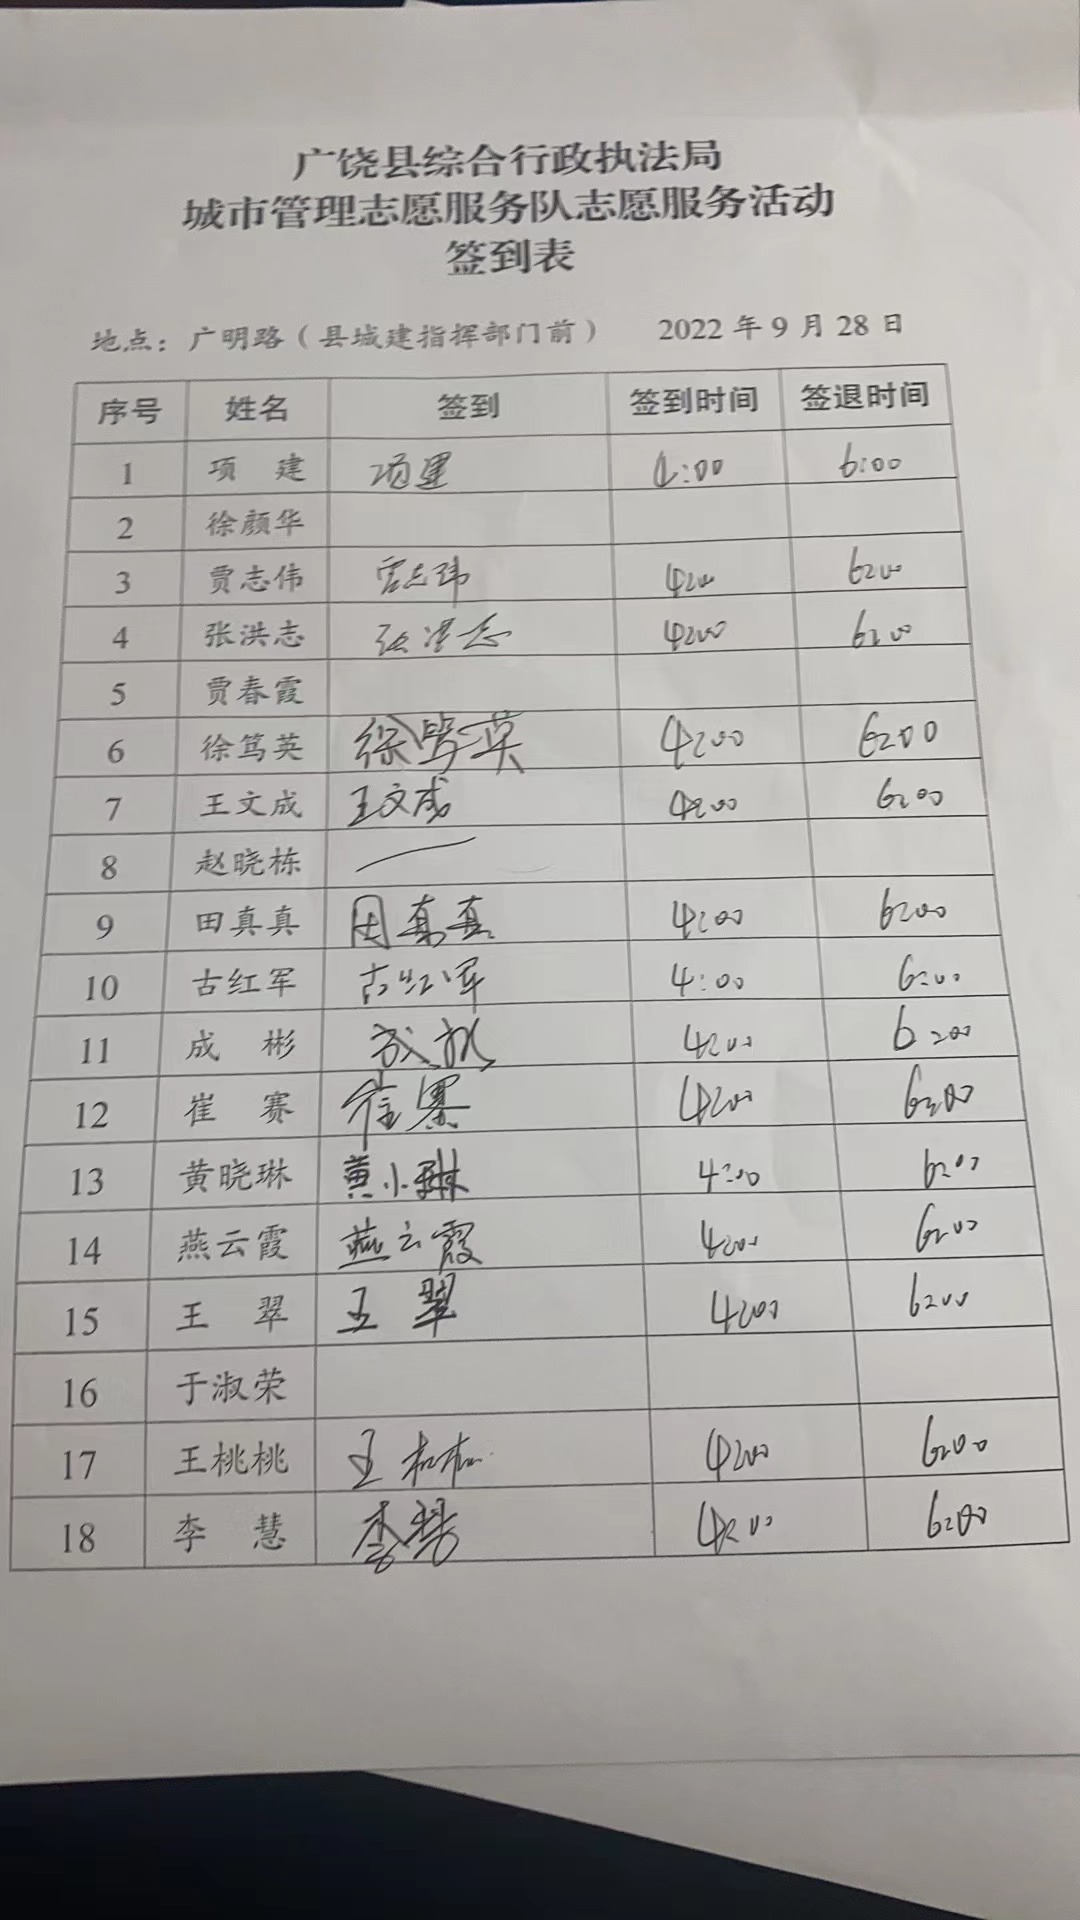 广饶县综合行政执法局
城市管理志愿服务队志愿服务活动
签到表
地点：广明路（县城建指挥部门前） 2022年9月28日
序号 姓名 签到 签到时间 签退时间
1 项建 项建 4:00 6:00
2 徐颜华
3 贾志伟 贾志玮 4:00 6:00
4 张洪志 张洪志 4:00 6:00
5 贾春霞
6 徐笃英 徐笃英 4:00 6:00
7 王文成 王文成 4:00 6:00
8 赵晓栋 —
9 田真真 田真真 4:00 6:00
10 古红军 古红军 4:00 6:00
11 成彬 成彬 4:00 6:00
12 崔赛 崔赛 4:00 6:00
13 黄晓琳 黄小琳 4:00 6:00
14 燕云霞 燕云霞 4:00 6:00
15 王翠 王翠 4:00 6:00
16 于淑荣
17 王桃桃 王桃桃 4:00 6:00
18 李慧 李慧 4:00 6:00